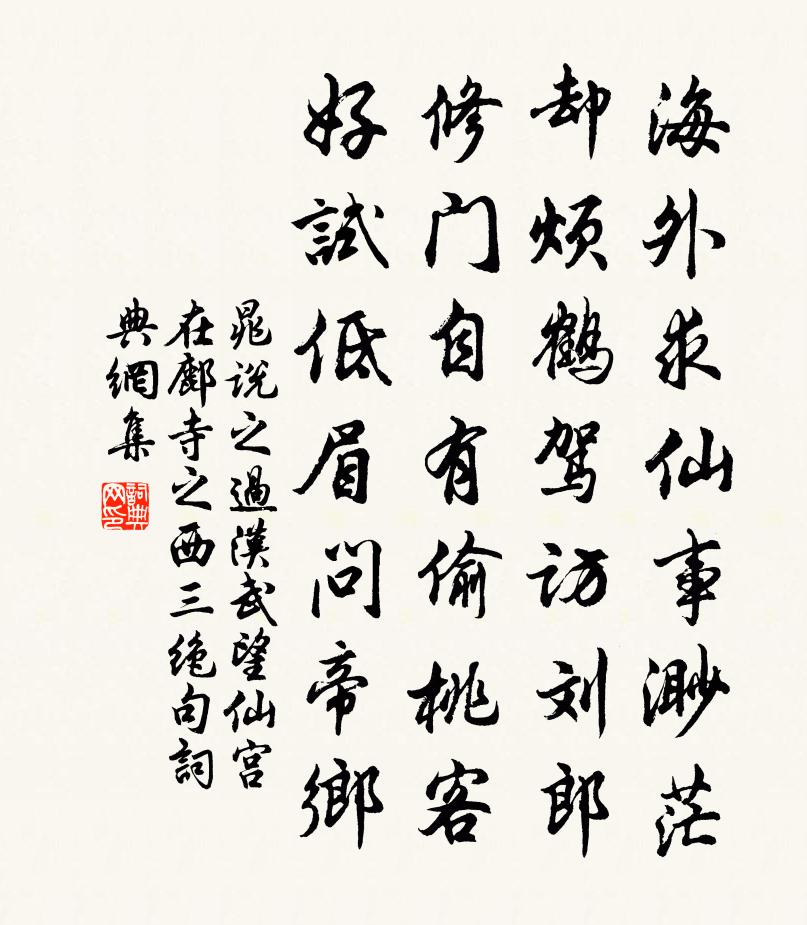 海外求仙事渺茫
却烦鹤驾访刘郎
修门自有偷桃客
好試低眉問帝鄉
晁説之過漢武望仙宮
在鄜寺之西三絶句詞
典網集
詞典
网印